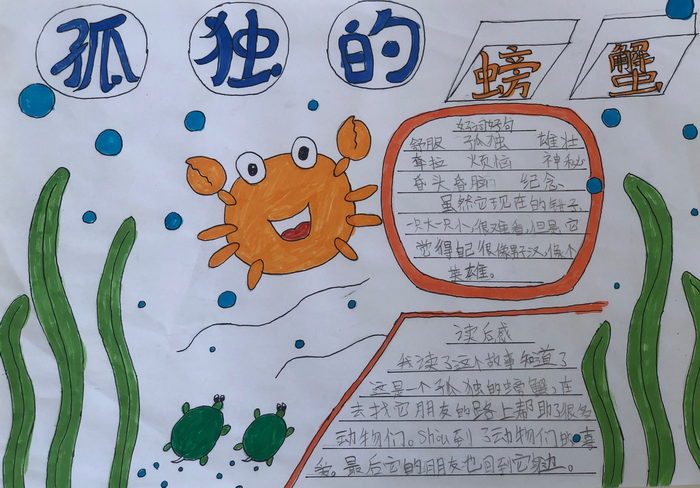 孤独的螃蟹
好词好句
舒服 孤独 雄壮
耷拉 烦恼 神秘
呆头呆脑 纪念
虽然它现在的钳子
一只大一只小,很难看,但是,它
觉得自己很像男子汉,像个
英雄。
读后感
我读了这个故事知道了
这是一个孤独的螃蟹,在
去找它朋友的路上帮助了很多
动物们。Shòu到了动物们的喜
爱。最后它的朋友也回到它身边。